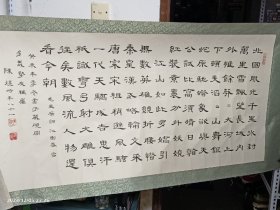 北國風光千里冰封
萬里雪飄望長城內
外惟餘莽莽大河上
下頓失滔滔山舞銀
蛇原馳蠟象欲與天
公試比高須晴日看
紅裝素裹分外妖嬈
江山如此多嬌引
無數英雄競折腰惜
秦皇漢武略輸文采
唐宗宋祖稍遜風騷
一代天驕成吉思汗
祇識彎弓射大雕俱
往矣數風流人物還
看今朝
毛主席詞沁園春雪
癸未年冬
陳廷 年八十二